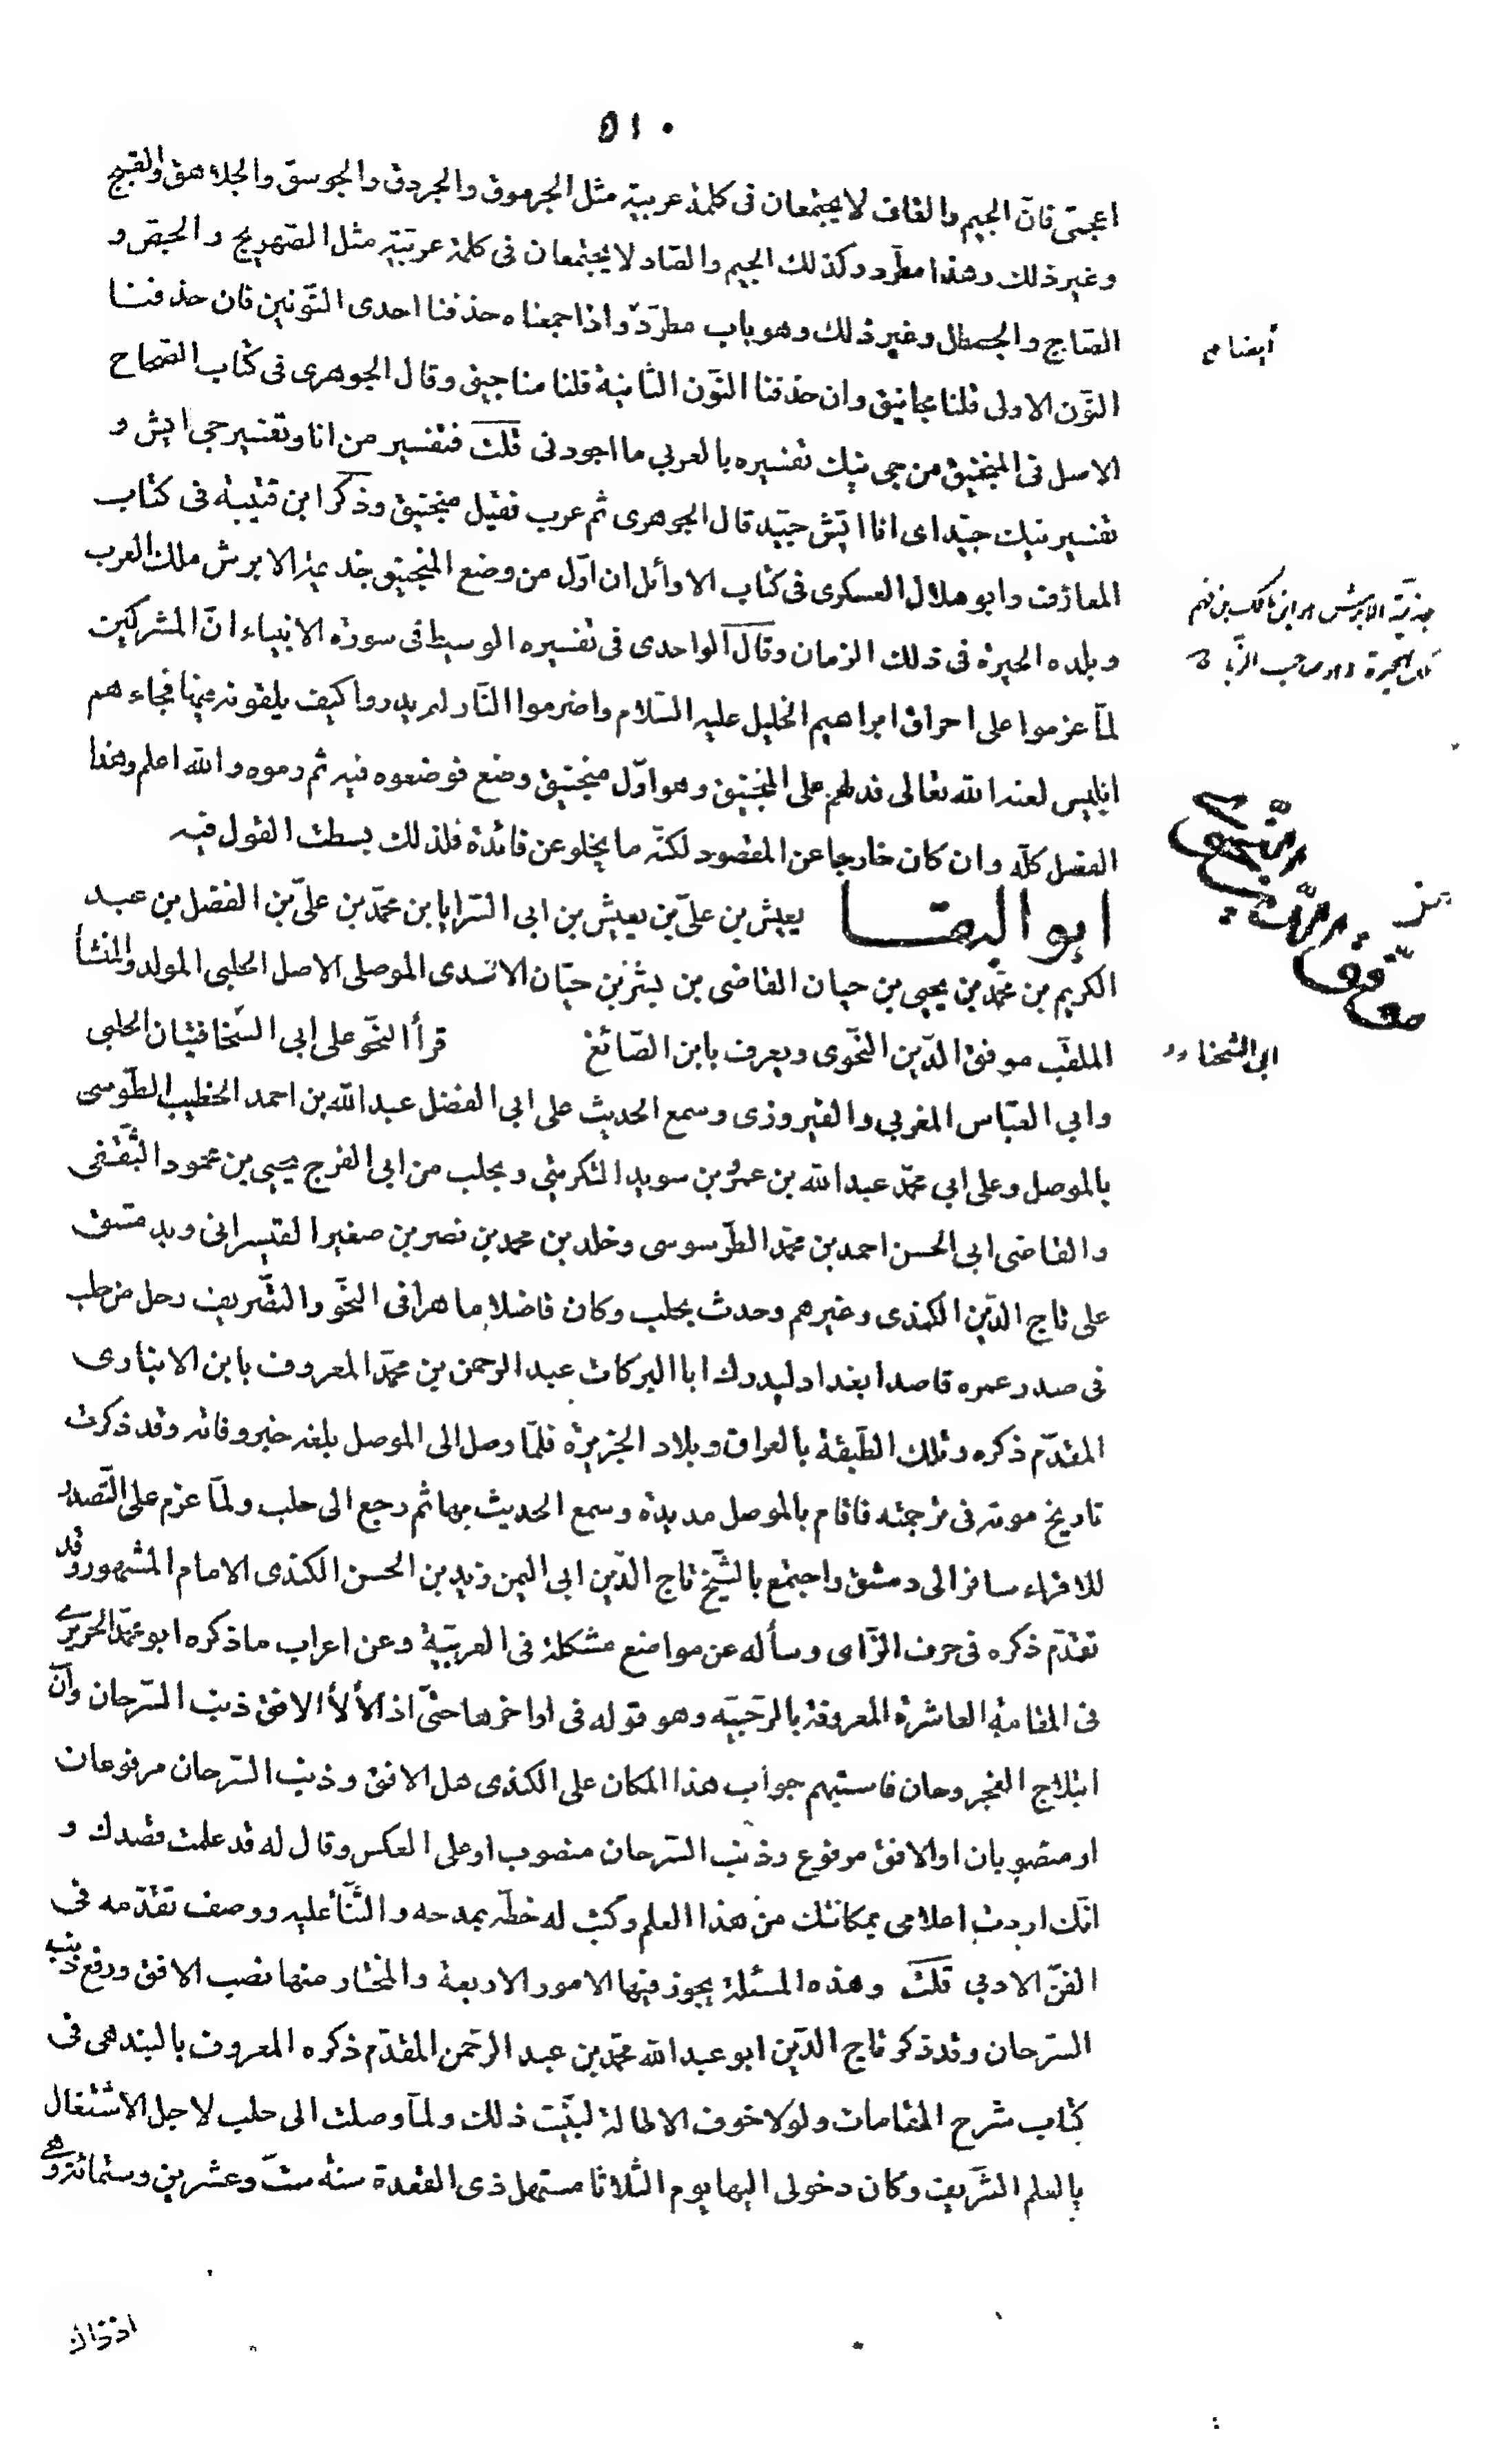 ٥١٠
اعجمى فان الجيم والقاف لا يجتمعان فى كلمة عربية مثل الجرموق والجردق والجوسق والجلاهق والقبج
وغير ذلك وهذا مطّرد وكذلك الجيم والصاد لا يجتمعان فى كلمة عربيّة مثل الصّهريج والجصّ و
الصّاج والجسطال وغير ذلك وهو باب مطرد واذا جمعناه حذفنا احدى النّونين فان حذفنا
أيضا صح
النّون الاولى قلنا مجانيق وان حذفنا النّون الثانية قلنا مناجيق وقال الجوهرى فى كتاب الصّحاح
الاصل فى المنجنيق من جى نيك تفسيره بالعربي ما اجودنى قلت فتفسير من انا وتفسير جى ايش و
تفسير نيك جيّد اى انا ايّش جيّد قال الجوهرى ثم عرب فقيل منجنيق وذكر ابن قتيبة فى كتاب
المعارف وابو هلال العسكرى فى كتاب الاوائل ان اوّل من وضع المنجنيق جذيمة الابرش ملك العرب
جذيمة الابرش هو ابن مالك بن فهم
وبلده الحيرة فى ذلك الزمان وقال الواحدى فى تفسيره الوسيط فى سورة الانبياء انّ المشركين
ملك الحيرة وهو صاحب الزّبا
لمّا عزموا على احراق ابراهيم الخليل عليه السّلام واضرموا النّار لم يدروا كيف يلقونه فيها فجاءهم
ابليس لعنه الله تعالى فدلهم على المنجنيق وهو اوّل منجنيق وضع فوضعوه فيه ثم رموه والله اعلم وهذا
الفصل كلّه وان كان خارجا عن المقصود لكنّه ما يخلو عن فائدة فلذلك بسطت القول فيه
ابو البقا يعيش بن علىّ بن يعيش بن ابى السّرايا بن محمّد بن علىّ بن الفضل بن عبد
موفق الدّين النحوى
الكريم بن محمّد بن يحيى بن حيان القاضى بن بشر بن حيّان الاسدى الموصلى الاصل الحلبى المولد والمنشأ
الملقّب موفق الدّين النّحوى ويعرف بابن الصّائغ قرأ النّحو على ابى السّخا فتيان الحلبى
ابى السّخا
وابى العبّاس المغربي والفيروزى وسمع الحديث على ابى الفضل عبد الله بن احمد الخطيب الطّوسى
بالموصل وعلى ابى محمّد عبد الله بن عمرو بن سويد التكريتي وبحلب من ابى الفرج يحيى بن محمود الثّقفى
والقاضى ابى الحسن احمد بن محمّد الطّرسوسى وخلد بن محمد بن نصر بن صغير القيسرانى وبدمشق
على تاج الدّين الكندى وغيرهم وحدث بحلب وكان فاضلا ماهرا فى النّحو والتّصريف رحل من حلب
فى صدر عمره قاصدا بغداد ليدرك ابا البركات عبد الرحمن بن محمّد المعروف بابن الانبارى
المقدّم ذكره وتلك الطّبقة بالعراق وبلاد الجزيرة فلمّا وصل الى الموصل بلغه خبر وفاته وقد ذكرت
تاريخ موته فى ترجمته فاقام بالموصل مديدة وسمع الحديث بها ثم رجع الى حلب ولمّا عزم على التّصدر
للاقراء سافر الى دمشق واجتمع بالشّيخ تاج الدّين ابى اليمن زيد بن الحسن الكندى الامام المشهور وقد
تقدّم ذكره فى حرف الزّاى وسأله عن مواضع مشكلة فى العربيّة وعن اعراب ما ذكره ابو محمّد الحريرى
فى المقامة العاشرة المعروفة بالرّحبيّه وهو قوله فى اواخرها حتّى اذا لألأ الافق ذنب السّرحان وآن
ابتلاج الفجر وحان فاستبهم جواب هذا المكان على الكندى هل الافق وذنب السّرحان مرفوعان
او منصوبان او الافق مرفوع وذنب السّرحان منصوب او على العكس وقال له قد علمت قصدك و
انّك اردت اعلامى بمكانتك من هذا العلم وكتب له خطّه بمدحه والثّنأ عليه ووصف تقدّمه فى
الفنّ الادبي قلت وهذه المسئلة يجوز فيها الامور الاربعة والمختار منها نصب الافق ورفع ذنب
السّرحان وقد ذكر تاج الدّين ابو عبد الله محمّد بن عبد الرّحمن المقدّم ذكره المعروف بالبندهى فى
كتاب شرح المقامات ولولا خوف الاطالة لبيّنت ذلك ولمّا وصلت الى حلب لاجل الاشتغال
بالعلم الشّريف وكان دخولى اليها يوم الثلاثا مستهل ذى القعدة سنة ستّ وعشرين وستمائة وهى
اذ ذاك